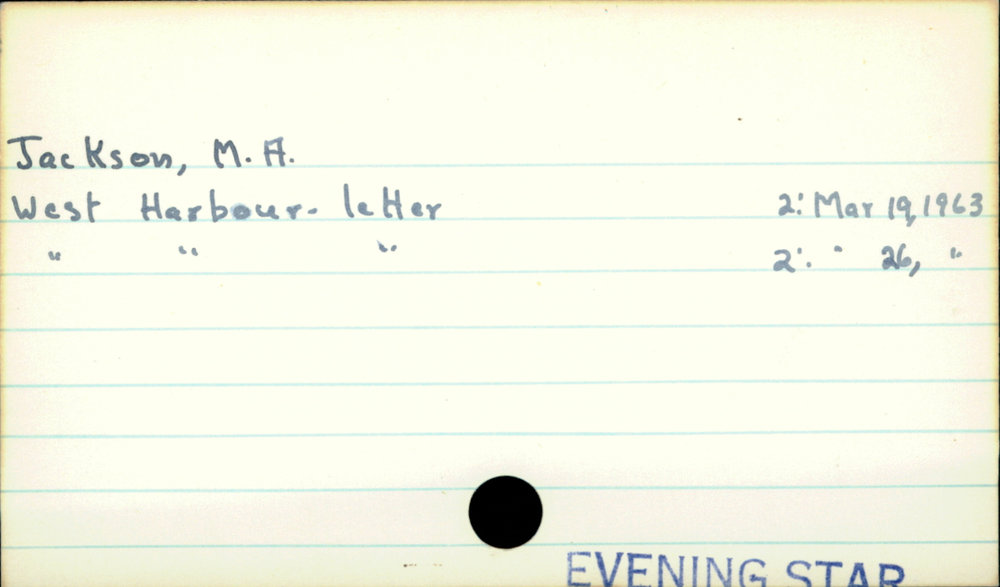 Jackson, M. A.
West Harbour - letter 2: Mar 19, 1963
" " " 2: " 26, "
EVENING STAR